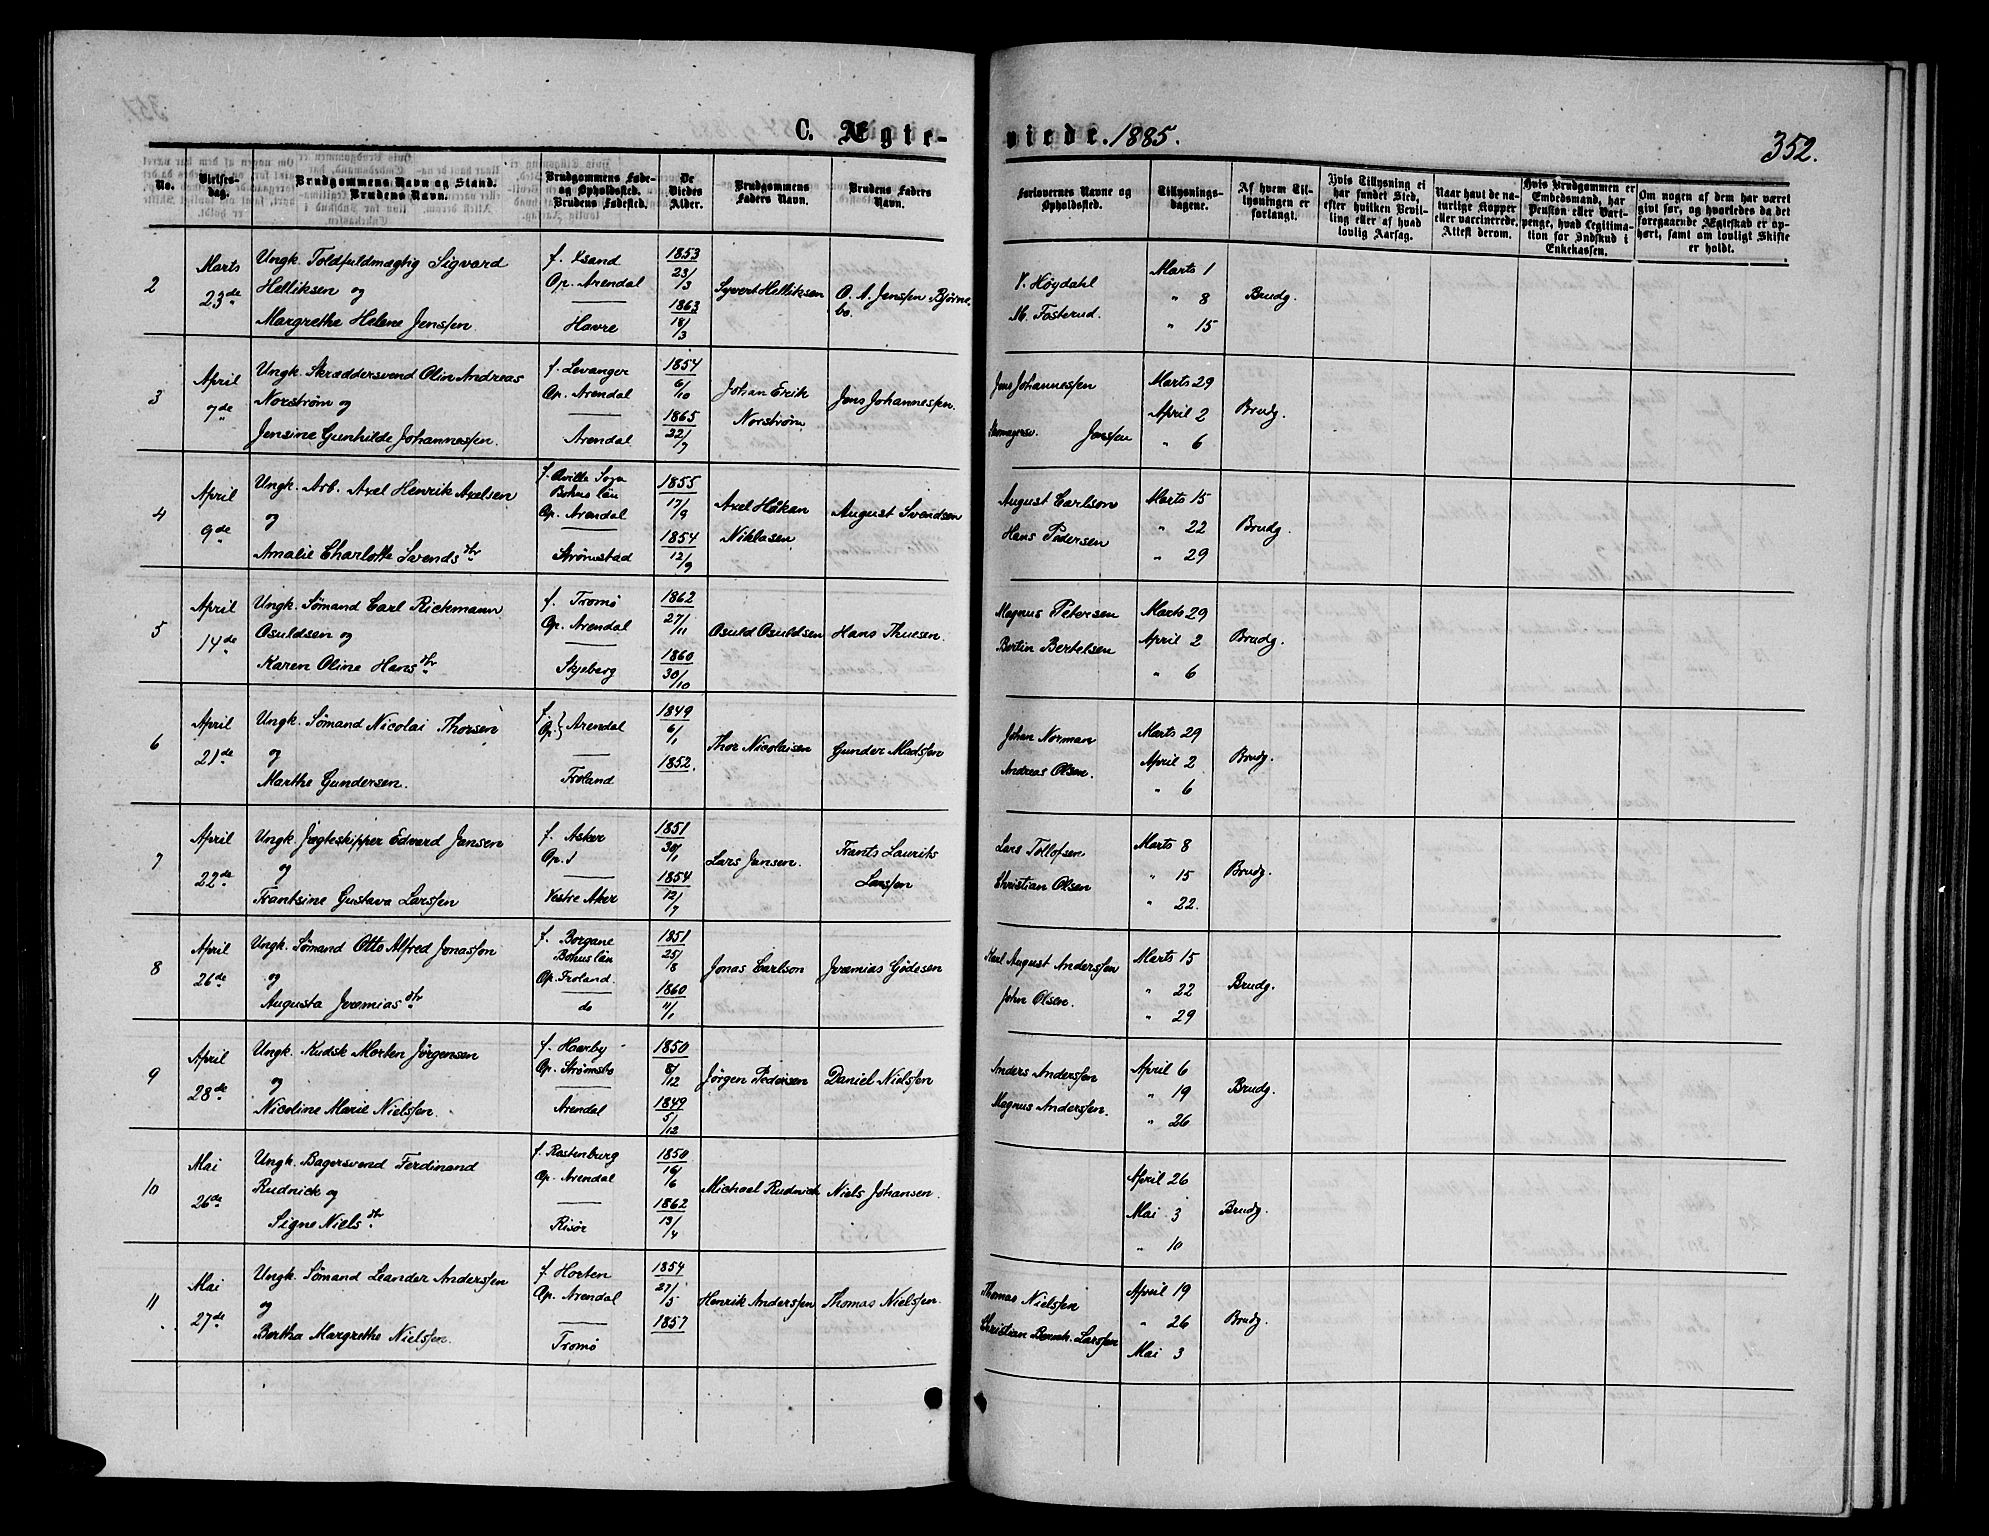 C. Ægte-
viede. 1885.
352.
No.
Vielses-
dag.
Brudgommens Navn og Stand.
Brudens Navn.
Brudgommens Føde-
og Opholdssted.
Brudens Fødested.
De
Viedes
Alder.
Brudgommens
Faders Navn.
Brudens Faders
Navn.
Forlovernes Navne og
Opholdssted.
Tillysnings-
dagene.
Af hvem Til-
lysningen er
forlangt.
Hvis Tillysning ei
har fundet Sted,
efter hvilken Bevil-
ling eller af hvad
lovlig Aarsag.
Naar havt de na-
turlige Kopper
eller vaccinerede.
Attest derom.
Hvis Brudgommen er
Embedsmand, har
Pension eller Vart-
penge, hvad Legitima-
tion for Indskud i
Enkekassen.
Om nogen af dem har været
gift før, og hvorledes da det
foregaaende Ægteskab er op-
hørt, samt om lovligt Skifte
er holdt.
2
Marts
23de
Ungk. Toldfuldmægtig Sigvard
Helliksen og
Margrethe Helene Jenssen
Op. Arendal
Havre
1853
23/3
1863
18/3
Syvert Helliksen
O. A. Jenssen Bjørne-
bo.
V. Høydahl
M. Fosterud.
Marts 1
" 8
" 15
Brudg.
3
April
7de
Ungk. Skræddersvend Olin Andreas
Norstrøm og
Jensine Gunhilde Johannessen.
f. Levanger
Op. Arendal
Arendal
1854
6/10
1865
22/7
Johan Erik
Norstrøm
Jens Johannessen.
Jens Johannessen
Jenssen
Marts 29
April 2
" 6
Brudg.
4
April
9de
Ungk. Arb. Axel Henrik Axelsen
og
Amalie Charlotte Svendsdtr
f. Qville Sogn
Bohus län
Op. Arendal
Strømstad
1855
17/9
1854
12/9
Axel Håkan
Niklasen
August Svendsen
August Carlson
Hans Pedersen
Marts 15
" 22
" 29
Brudg.
5
April
14de
Ungk. Sømand Carl Rickmann
Osuldsen og
Karen Oline Hansdtr
f. Tromø
Op. Arendal
Skjeberg
1862
27/11
1860
30/10
Osuld Osuldsen
Hans Thuesen.
Magnus Petersen
Bertin Bertelsen
Marts 29
April 2
" 6
Brudg.
6
April
21de
Ungk. Sømand Nicolai Thorsen
og
Marthe Gundersen.
f. Op. } Arendal
Froland
1849
6/1
1852.
Thor Nicolaisen
Gunder Madssen
Johan Norman
Andreas Olsen.
Marts 29
April 2
" 6
Brudg.
7
April
22de
Ungk. Jægteskipper Edvard Jansen
og
Frantsine Gustava Larssen
f. Asker
Op. d
Vestre Aker
1851
30/1
1854
12/7
Lars Jansen.
Frants Laurits
Larssen
Lars Tollofsen
Christian Olsen
Marts 8
" 15
" 22.
Brudg.
8
April
26de
Ungk. Sømand Otto Alfred Jonasson
og
Augusta Jeremiasdtr
f. Borgane
Bohuslän
Op. Froland.
do
1851
25/8
1860
11/1
Jonas Carlson
Jeremias Gødesen
Karl August Anderssen
John Olsen.
Marts 15
" 22
" 29
Brudg.
9
April
28de
Ungk. Kudsk Morten Jörgensen
og
Nicoline Marie Nielssen.
f. Haarby
Op. Strømsbo
Arendal
1850
8/12
1849
5/12
Jörgen Pedersen
Daniel Nielssen
Anders Anderssen
Magnus Anderssen.
April 6
" 19
" 26
Brudg.
10
Mai
26de
Ungk. Bagersvend Ferdinand
Rudnick og
Signe Nielsdtr
f. Rastenburg
Op. Arendal
Risør
1850
16/6
1862
13/4
Michael Rudnick
Niels Johansen.
April 26
Mai 3
" 10
Brudg.
11
Mai
27de
Ungk. Sømand Leander Anderssen
og
Bertha Margrethe Nielssen.
f. Horten
Op. Arendal
Tromø
1854
27/5
1857
Henrik Anderssen
Thomas Nielssen.
Thomas Nielssen
Christian Larssen
April 19
" 26
Mai 3
Brudg.